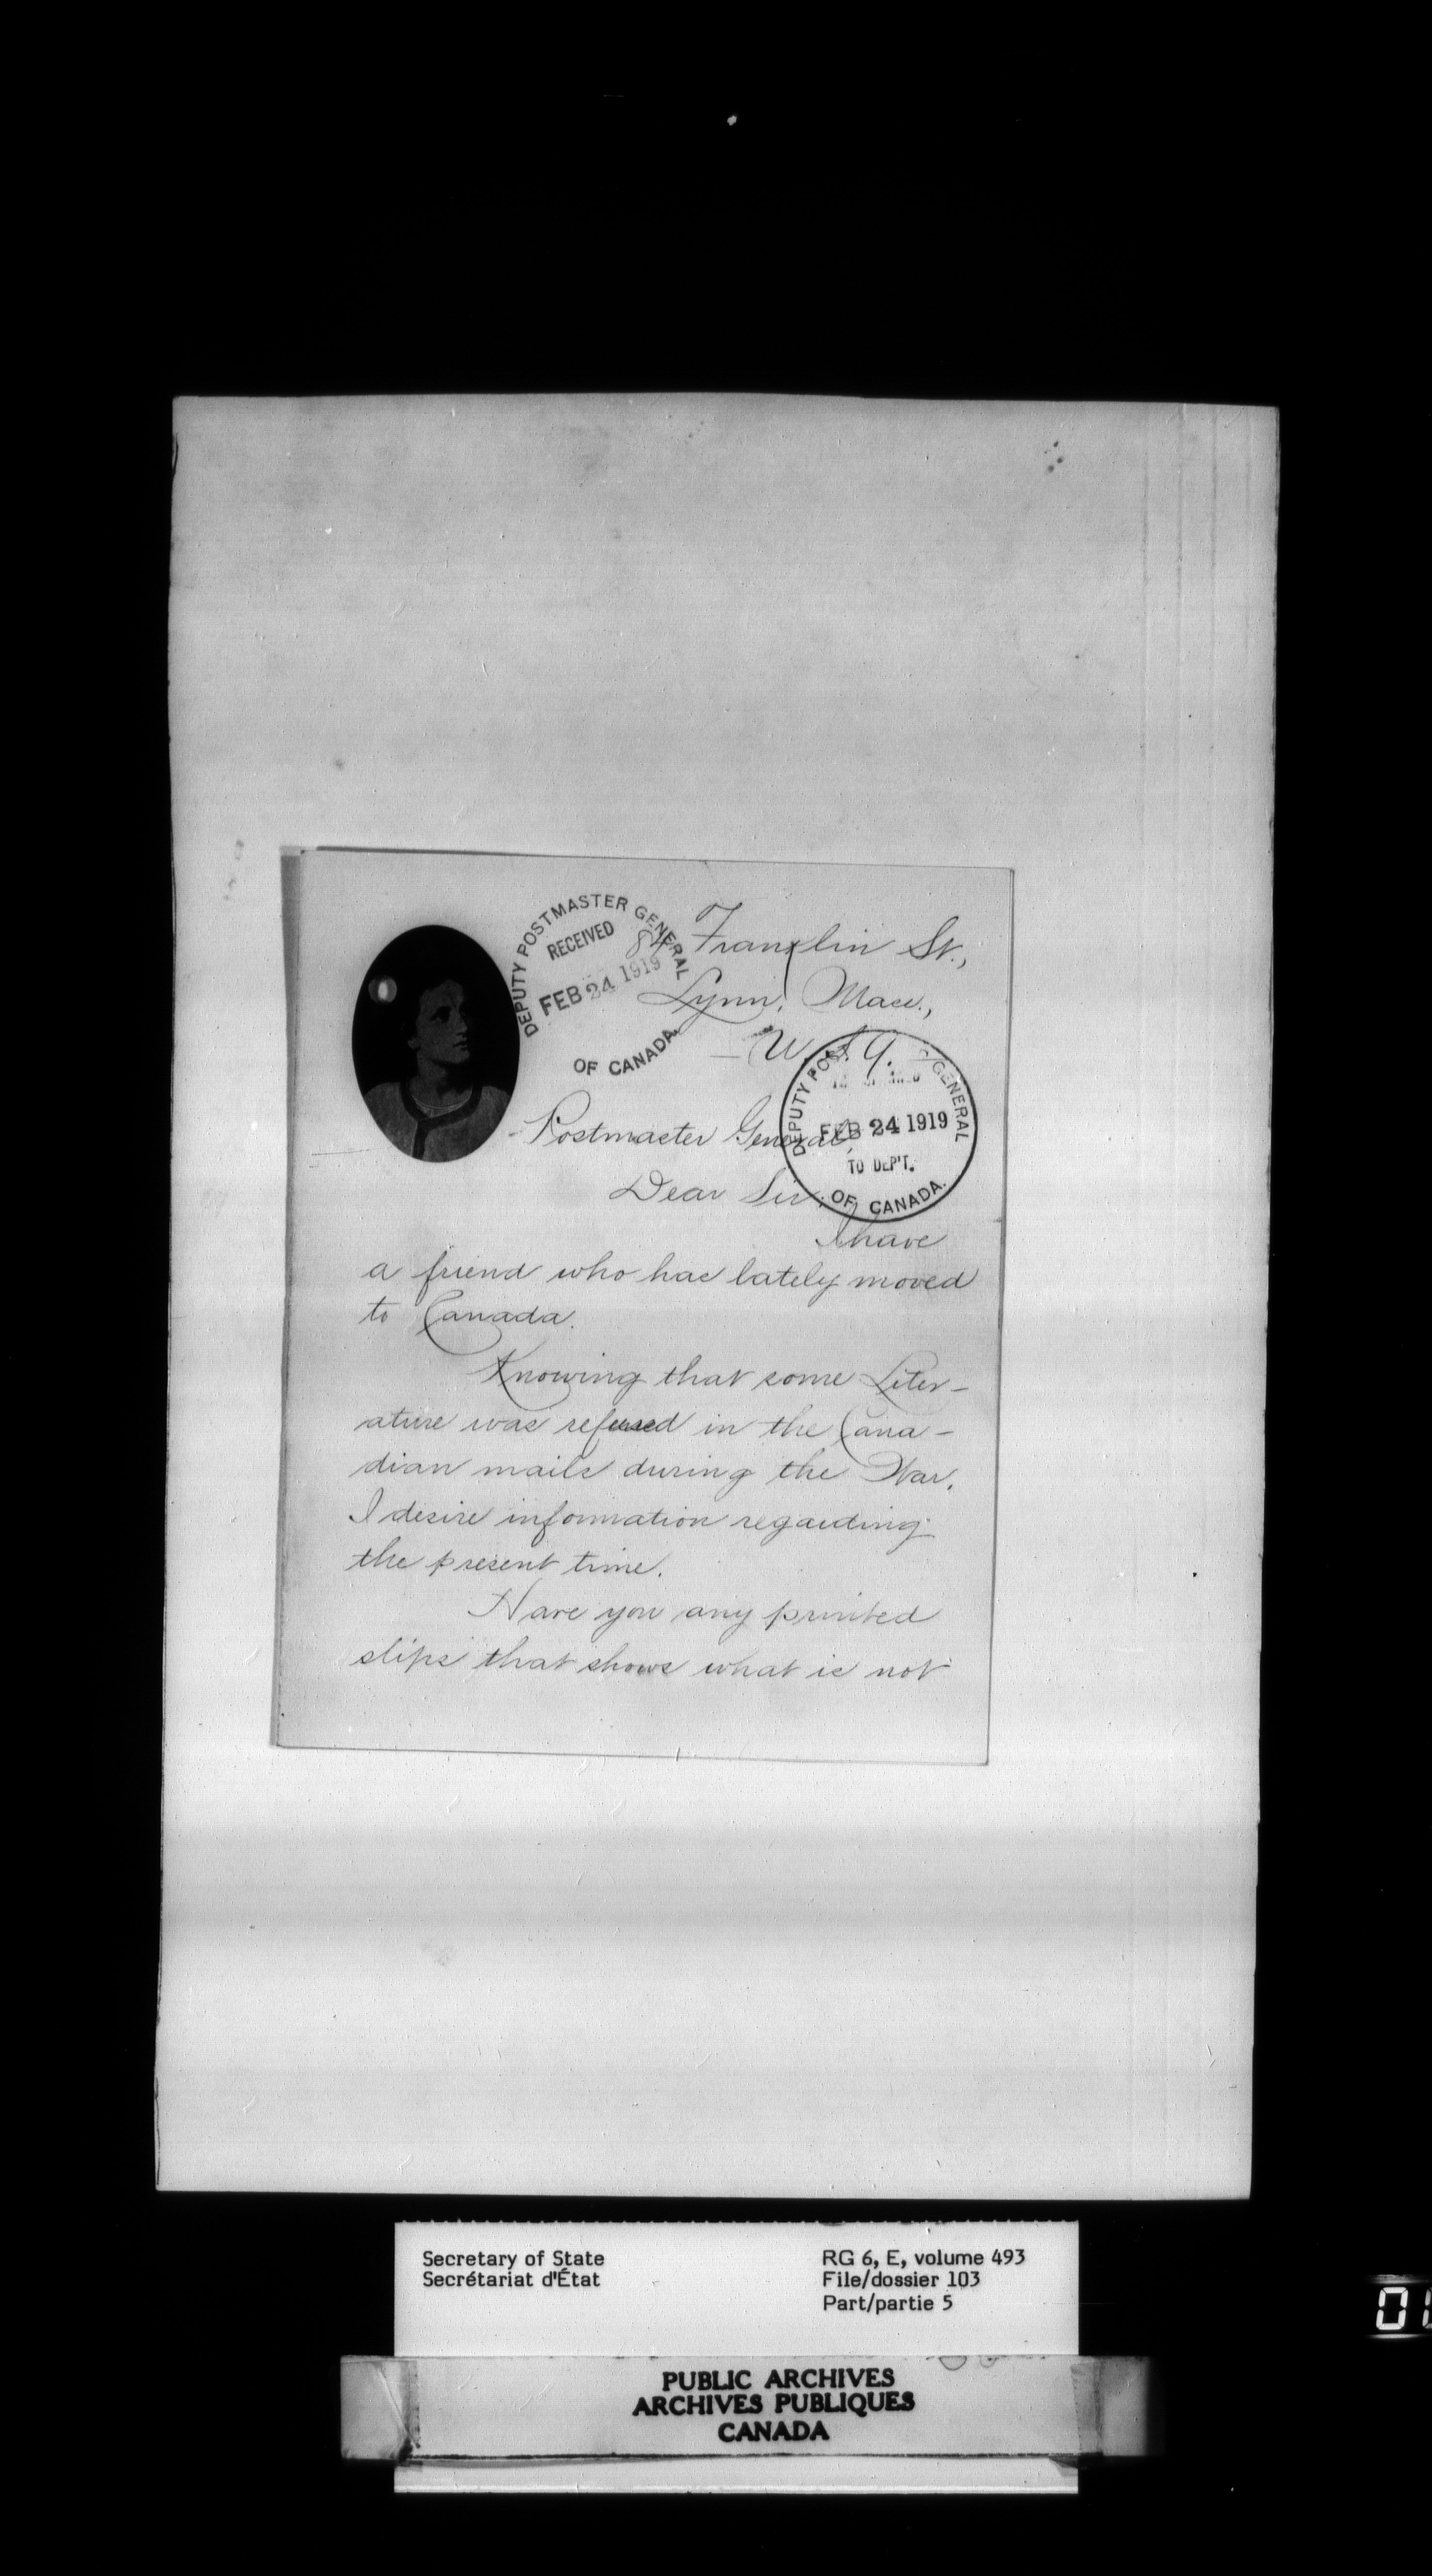 DEPUTY POSTMASTER GENERAL
RECEIVED
FEB 24 1919
OF CANADA.
84 Franklin St.,
Lynn, Mass.,
U.S.A.
DEPUTY POST GENERAL
FEB 24 1919
TO DEP'T.
OF CANADA.
Postmaster General,
Dear Sir,
I have
a friend who has lately moved
to Canada.
Knowing that some Liter-
ature was refused in the Cana-
dian mails during the War,
I desire information regarding
the present time.
Have you any printed
slips that shows what is not
Secretary of State
Secrétariat d'État
RG 6, E, volume 493
File/dossier 103
Part/partie 5
PUBLIC ARCHIVES
ARCHIVES PUBLIQUES
CANADA